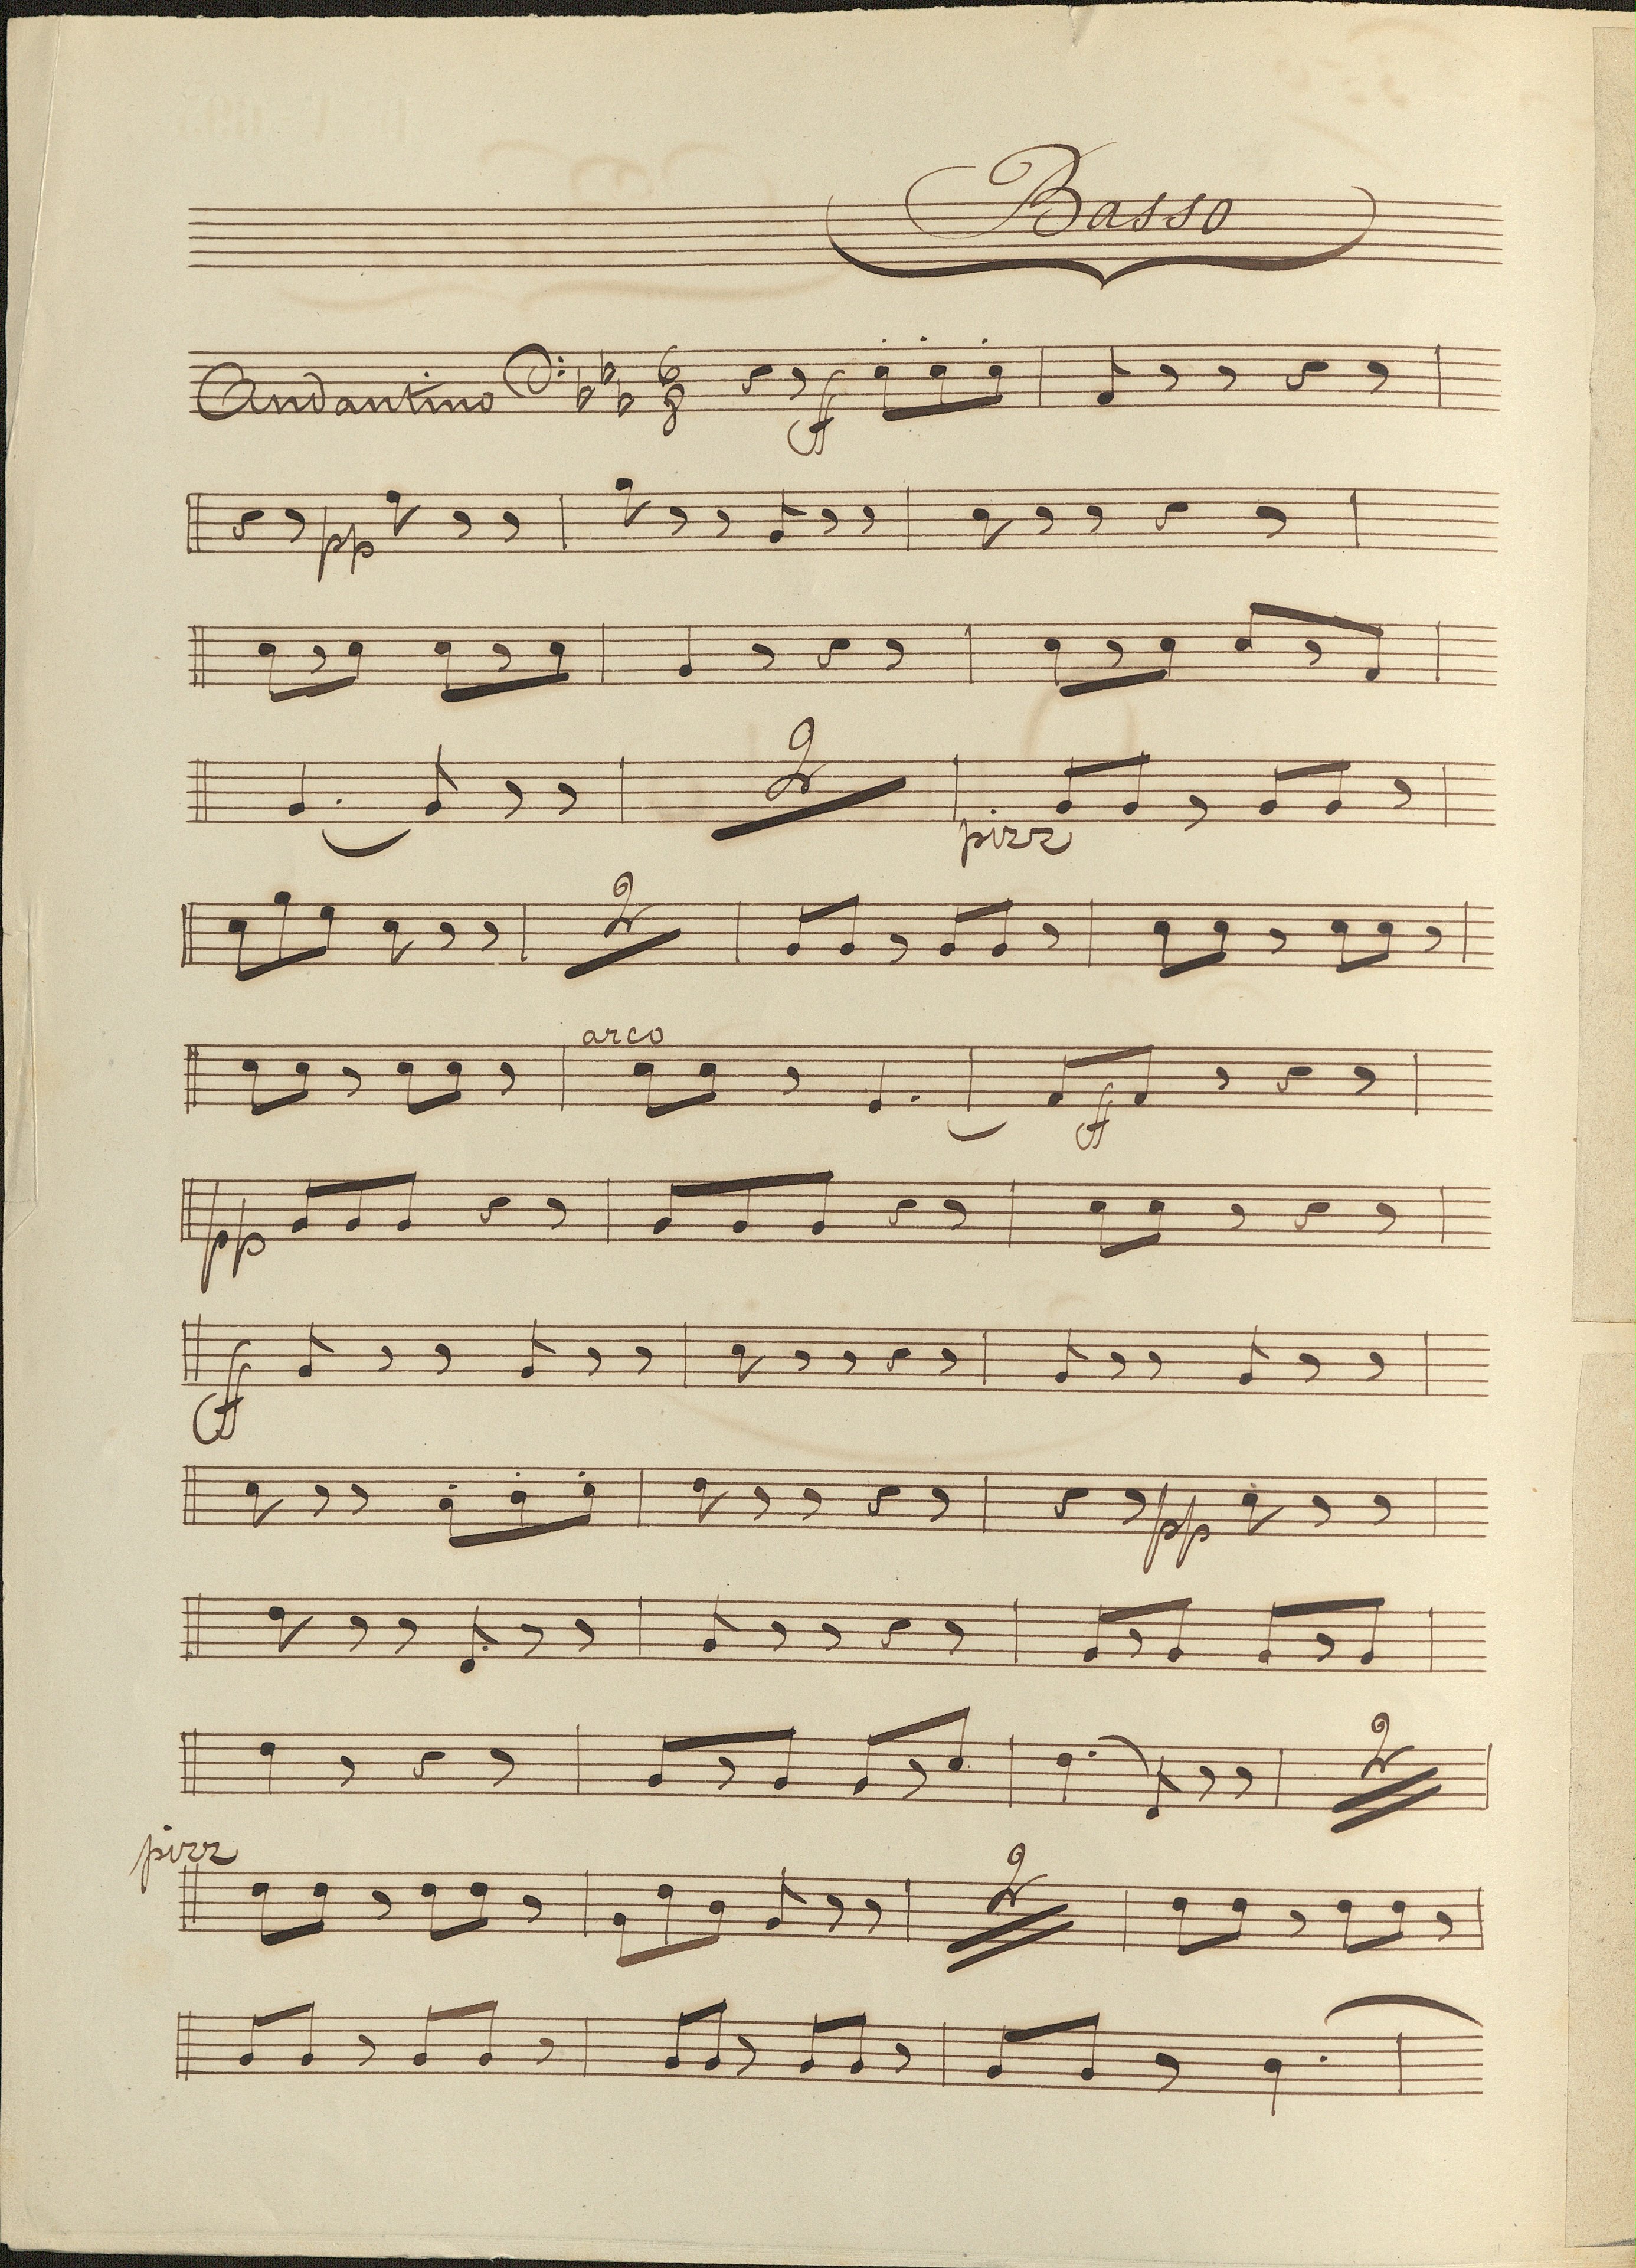 Basso
Andantino 6/8 ff
pp
2
pizz
2
arco
ff
pp
ff
pp
2
pizz
2